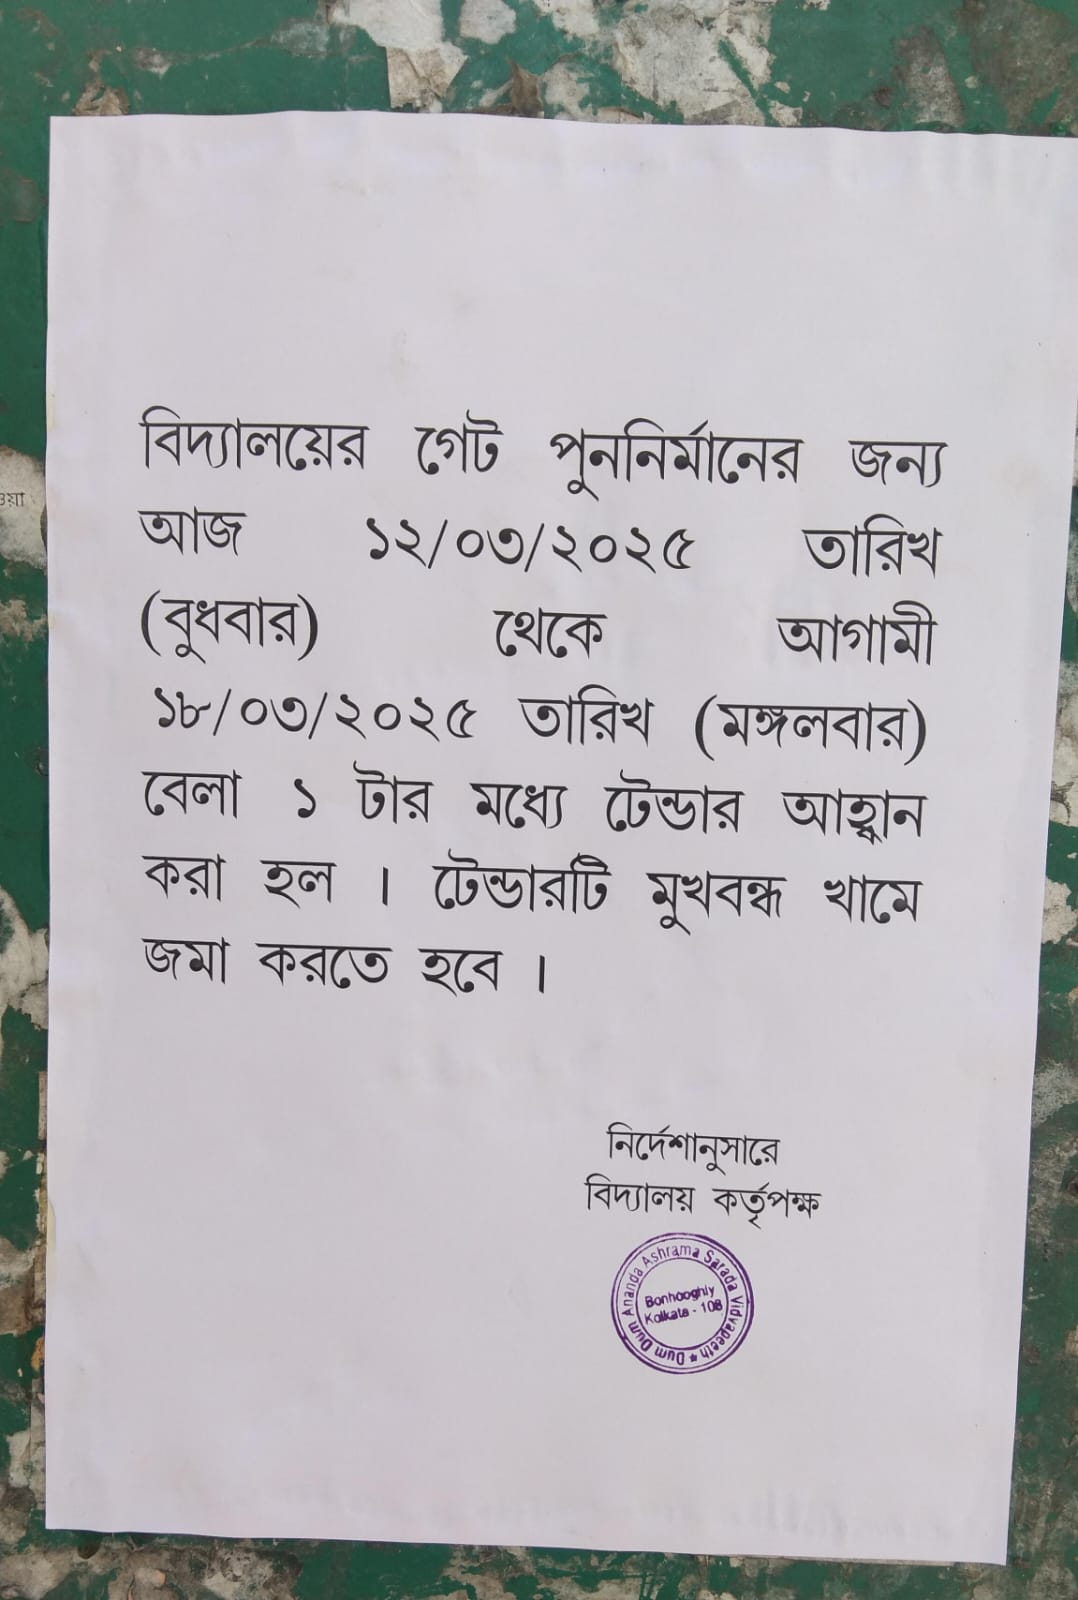 বিদ্যালয়ের গেট পুননির্মানের জন্য
আজ ১২/০৩/২০২৫ তারিখ
(বুধবার) থেকে আগামী
১৮/০৩/২০২৫ তারিখ (মঙ্গলবার)
বেলা ১ টার মধ্যে টেন্ডার আহ্বান
করা হল । টেন্ডারটি মুখবন্ধ খামে
জমা করতে হবে ।
নির্দেশানুসারে
বিদ্যালয় কর্তৃপক্ষ
Dum Dum Ananda Ashrama Sarada Vidyapeeth *
Bonhooghly
Kolkata - 108